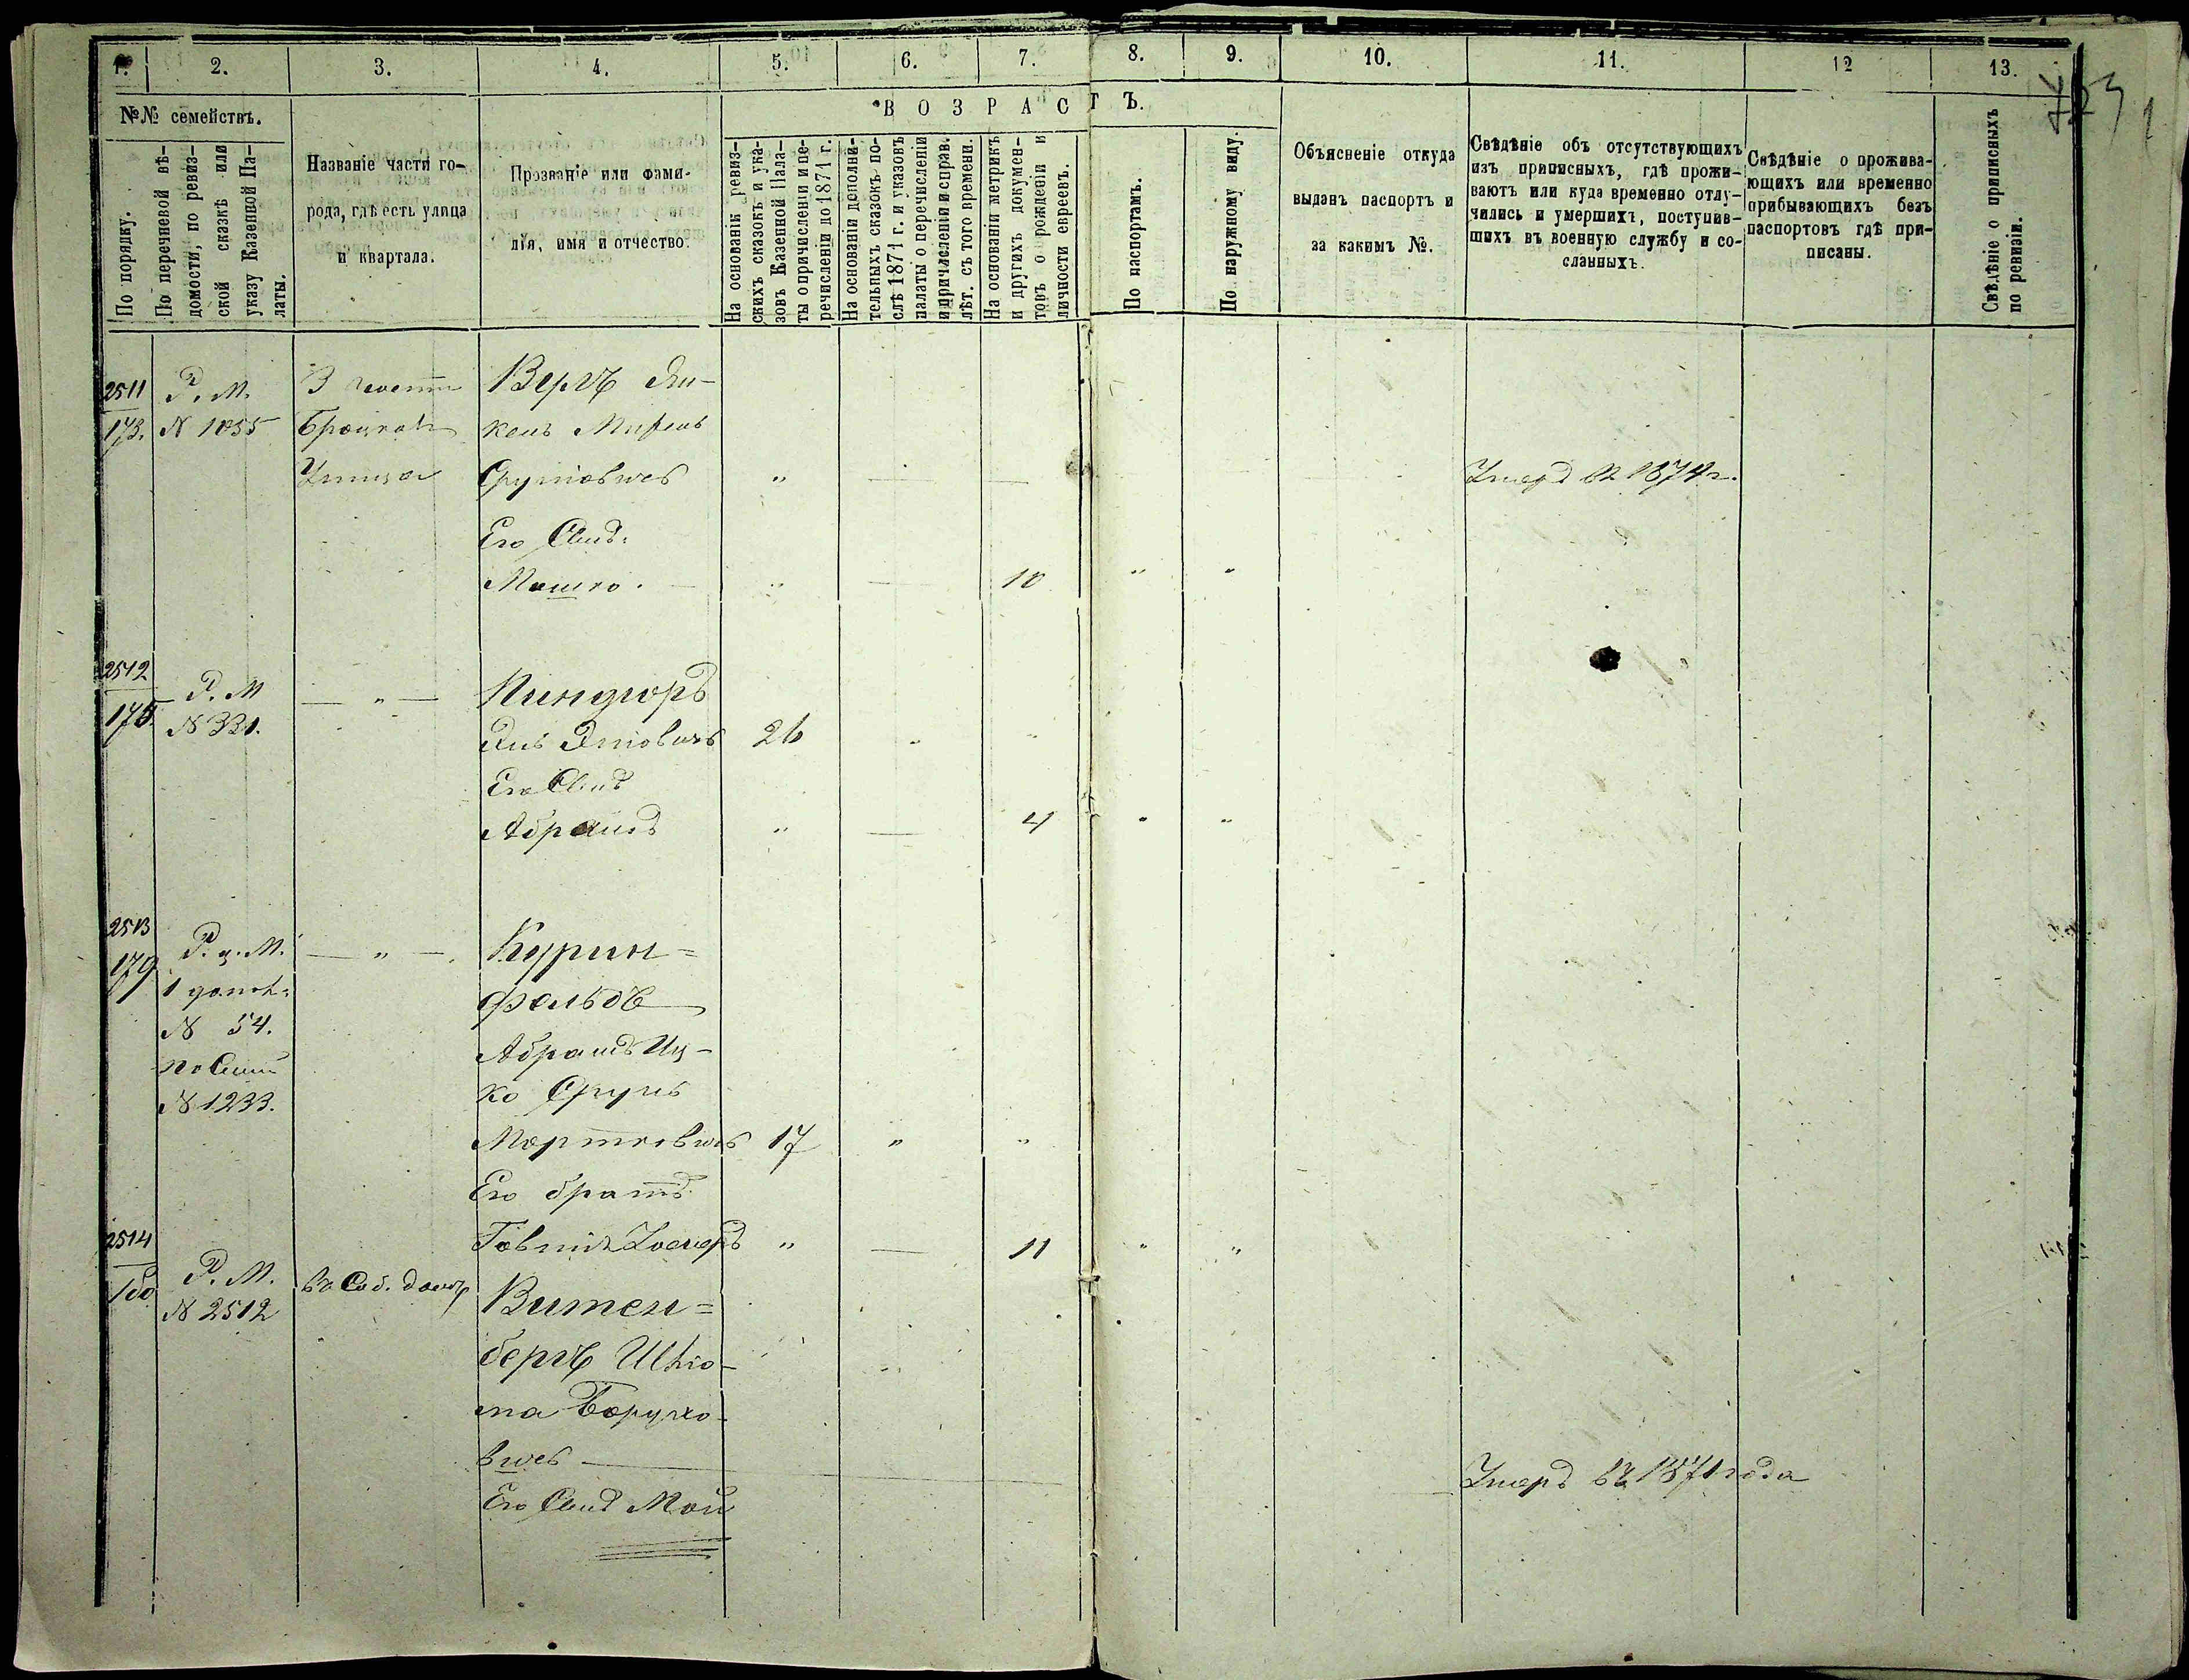 1. 2. 3. 4. 5. 6. 7. 8. 9. 10. 11. 12 13.
№№ семействъ.
По порядку.
По перечневой вѣ-
домости, по ревиз-
ской сказкѣ или
указу Казенной Па-
латы.
Названіе части го-
рода, гдѣ есть улица
и квартала.
Прозваніе или фами-
лія, имя и отчество.
ВОЗРАСТЪ.
На основаніи ревиз-
скихъ сказокъ и ука-
зовъ Казенной Пала-
ты о причисленіи и пе-
речисленіи по 1871 г.
На основаніи дополни-
тельныхъ сказокъ по-
слѣ 1871 г. и указовъ
палаты о перечисленіи
и причисленіи и справ.
лѣт. съ того времени.
На основаніи метрикъ
и другихъ докумен-
товъ о рожденіи и
личности евреевъ.
По паспортамъ.
По наружному виду.
Объясненіе откуда
выданъ паспортъ и
за какимъ №.
Свѣдѣніе объ отсутствующихъ
изъ приписныхъ, гдѣ прожи-
ваютъ или куда временно отлу-
чились и умершихъ, поступив-
шихъ въ военную службу и со-
сланныхъ.
Свѣдѣніе о прожива-
ющихъ или временно
прибывающихъ безъ
паспортовъ гдѣ при-
писаны.
Свѣдѣніе о приписныхъ
по ревизіи.
2511 Р. М. 3 части Вергъ
173. N 1055 кель
Улица " — — Умеръ въ 1874 г.
Его Сынъ
Мошко. — " — 10 " "
2512
Р. М — " —
175. N 331.
26 " "
Его Сынъ
Абрамъ " — 4 " "
2513
179 Р. М. — " — Курин=
1 допол: фельдъ
N 54. Абрамъ Иц-
ко
N 1233.
Мортковичъ 17 " "
Его братъ
2514 " — 11 " "
180 Р. М. въ Соб. домѣ Витен=
N 2512
бергъ
ма Борухо-
вичъ — Умеръ въ 1871 года
Его Сынъ